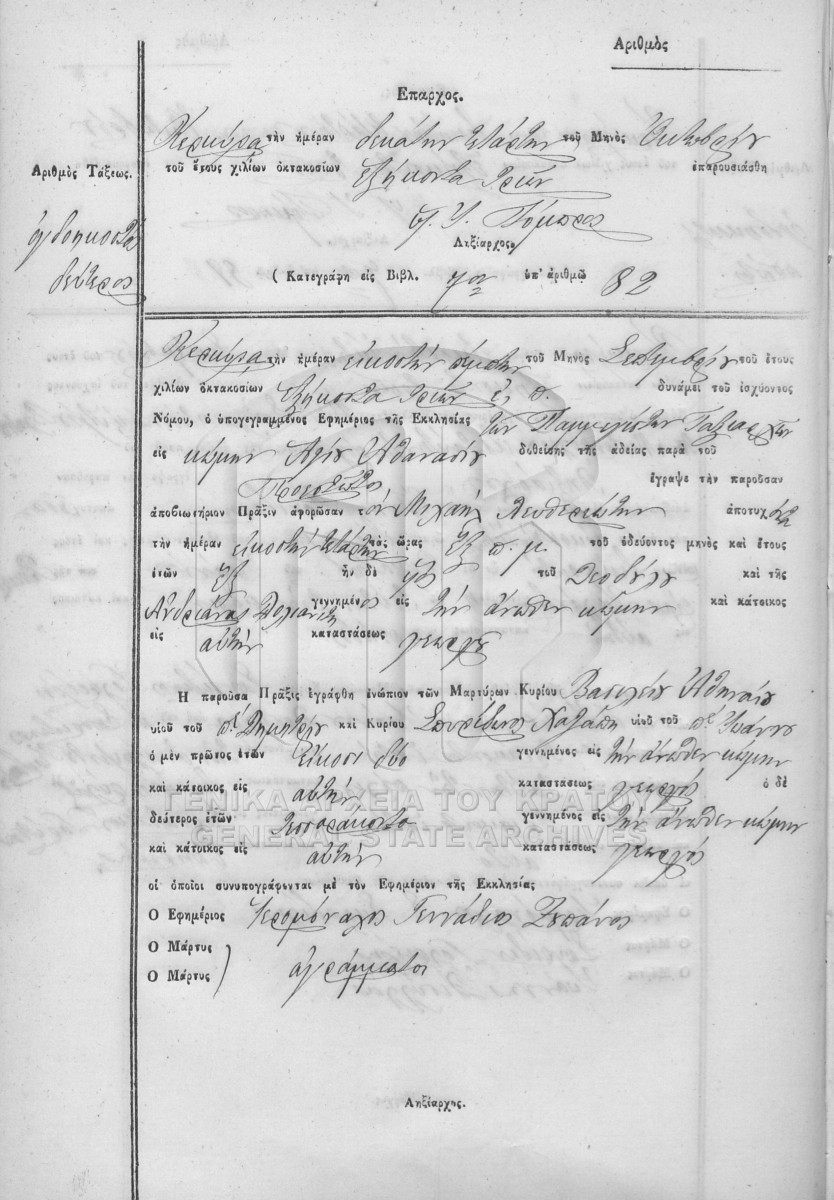 Αριθμὸς
Επαρχος.
Κερκύρα τὴν ἡμέραν δεκάτην τετάρτην τοῦ Μηνὸς Οκτωβρίου
τοῦ ἔτους χιλίων ὀκτακοσίων ἑξήκοντα τριῶν ἐπαρουσιάσθη
Αριθμὸς Τάξεως.
ὀγδοηκοστὸς
δεύτερος
Ληξίαρχος
( Κατεγράφη εἰς Βιβλ. 7ον ὑπ' ἀριθμῷ 82
Κερκύρα τὴν ἡμέραν εἰκοστὴν πέμπτην τοῦ Μηνὸς Σεπτεμβρίου τοῦ ἔτους
χιλίων ὀκτακοσίων ἑξήκοντα τριῶν ἐ. π. δυνάμει τοῦ ἰσχύοντος
Νόμου, ὁ ὑπογεγραμμένος Εφημέριος τῆς Εκκλησίας τῶν Παμμεγίστων Ταξιαρχῶν
εἰς κώμην Αγίου Αθανασίου δοθείσης τῆς ἀδείας παρὰ τοῦ
Προεστῶτος ἔγραψε τὴν παροῦσαν
ἀποβιωτήριον Πρᾶξιν ἀφορῶσαν τὸν Μιχαὴλ Λευθεριώτην ἀποτυχόντα
τὴν ἡμέραν εἰκοστὴν τετάρτην τὰς ὥρας ἓξ π. μ. τοῦ ὁδεύοντος μηνὸς καὶ ἔτους
ἐτῶν ἓξ ἦν δὲ υἱὸς τοῦ Θεοδώρου καὶ τῆς
Ανδριάνας γεννημένος εἰς τὴν ἄνωθεν κώμην καὶ κάτοικος
εἰς αὐτὴν καταστάσεως γεωργὸς
Η παροῦσα Πρᾶξις ἐγράφθη ἐνώπιον τῶν Μαρτύρων Κυρίου Βασιλείου Αθηναίου
υἱοῦ τοῦ ποτὲ Δημητρίου καὶ Κυρίου Σπυρίδωνος Χαζάπη υἱοῦ τοῦ ποτὲ Ιωάννου
ὁ μὲν πρῶτος ἐτῶν εἴκοσι δύο γεννημένος εἰς τὴν ἄνωθεν κώμην
καὶ κάτοικος εἰς αὐτὴν καταστάσεως γεωργὸς ὁ δὲ
δεύτερος ἐτῶν τεσσαράκοντα γεννημένος εἰς τὴν ἄνωθεν κώμην
καὶ κάτοικος εἰς αὐτὴν καταστάσεως γεωργὸς
οἱ ὁποῖοι συνυπογράφονται μὲ τὸν Εφημέριον τῆς Εκκλησίας
Ο Εφημέριος Ιερομόναχος Γεννάδιος Ζυπάνος
Ο Μάρτυς
Ο Μάρτυς ) ἀγράμματοι
Ληξίαρχος.
ΓΕΝΙΚΑ ΑΡΧΕΙΑ ΤΟΥ ΚΡΑΤΟΥΣ
GENERAL STATE ARCHIVES